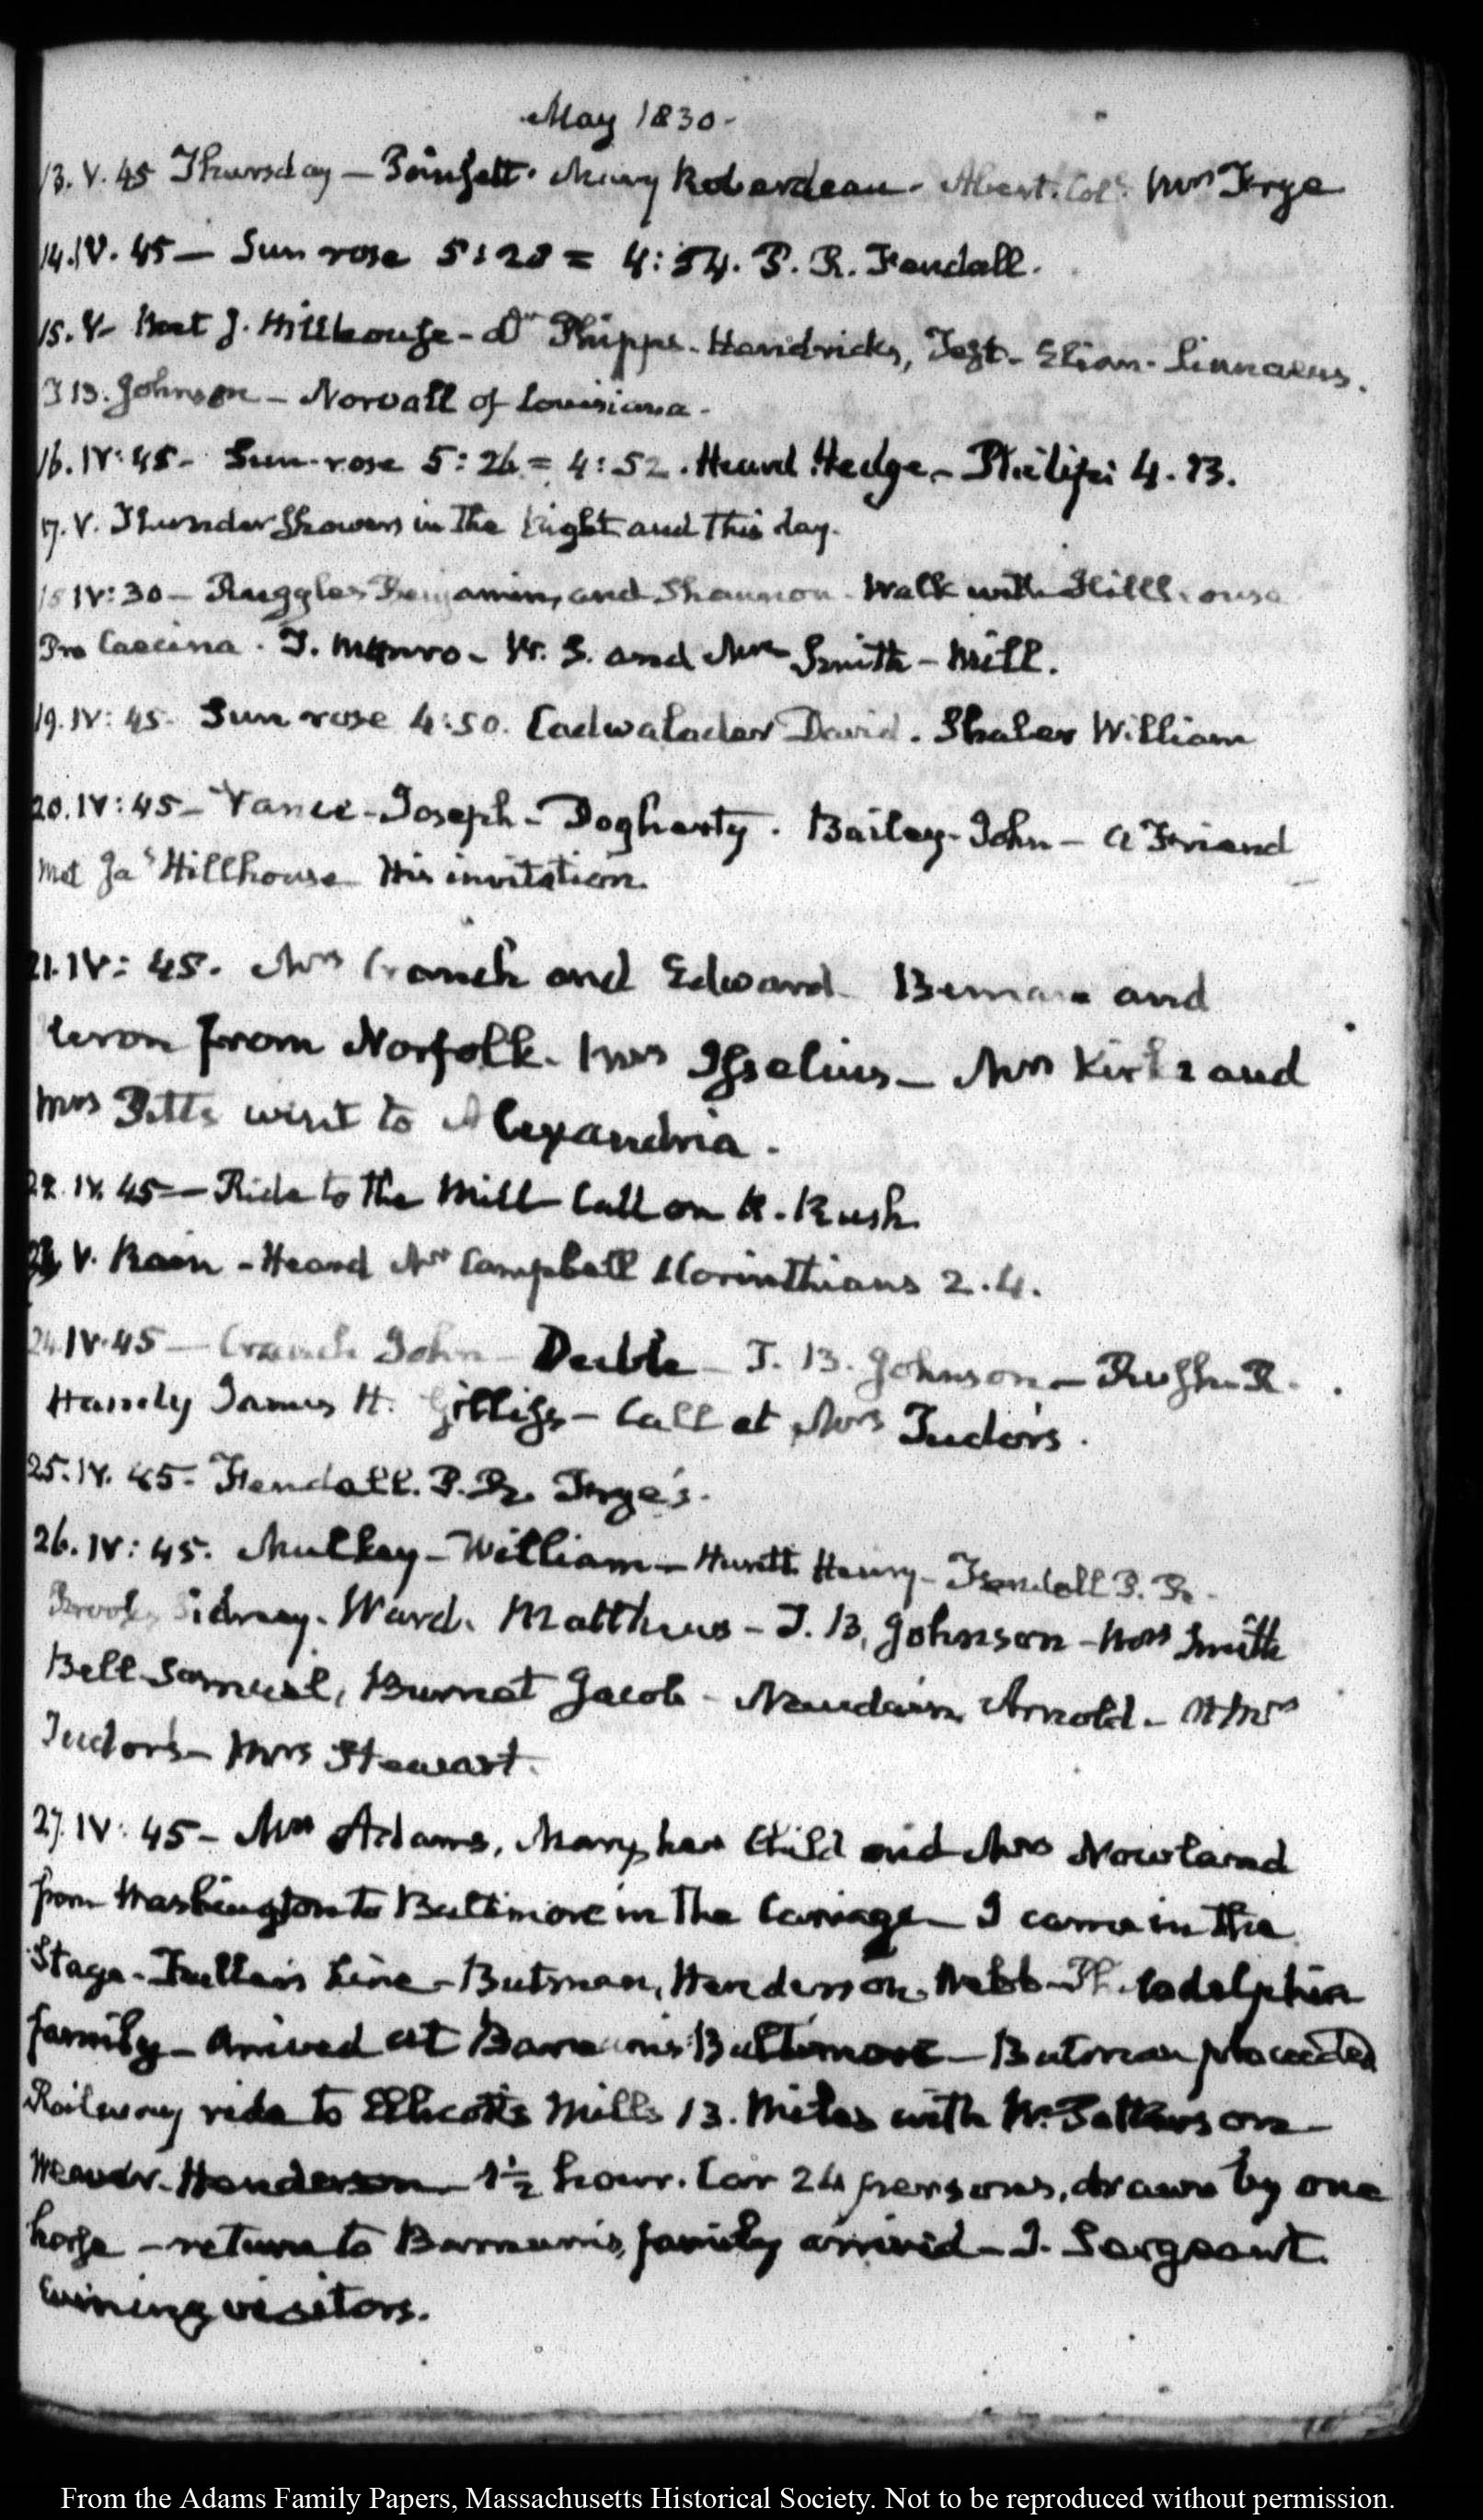 May 1830-
13. V. 45 Thursday — Poinsett. Mary Roberdeau. Abert. Colo. Mrs Frye
14. IV. 45 — Sun rose 5:28 = 4:54. P. R. Fendall.
15. V— Met J. Hillhouse - Dr Phipps. Hendricks, Test - Elian - Linnaeus.
J B. Johnson — Norvall of Louisiana.
16. IV: 45- Sun rose 5:26 = 4:52. Heard Hedge - Philippi 4. 13.
17. V. Thunder Showers in the Night and this day.
18 IV: 30 — Ruggles Benjamin, and Shannon. Walk with Hillhouse
Pro Caecina. T. Munro - W. S. and Mrs Smith — Mill.
19. IV: 45. Sun rose 4:50. Cadwalader David. Shaler William
20. IV: 45 — Vance - Joseph - Dogherty. Bailey - John — a Friend
met Jas Hillhouse His invitation.
21. IV: 45. Mrs Cranch and Edward and
from Norfolk. Mrs Iselius — Mrs Kirk and
Mrs Pitts went to Alexandria.
22. IV. 45 — Ride to the Mill Call on R. Rush.
23. V. Rain - Heard Mr Campbell 1 Corinthians 2. 4.
24. IV. 45 — Cranch John — Deeble — T. B. Johnson — Rush R.
Handy James H. Gilliss — Call at Mrs Tudor's.
25. IV. 45. Fendall. P. R. Frye's.
26. IV: 45. Mulkey - William — Huntt Henry - Fendall P. R.
Brooks Sidney. Ward. Matthews — T. B. Johnson — Mrs Smith
Bell Samuel, Burnet Jacob - Naudain Arnold — At Mrs
Tudor's — Mrs Stewart.
27. IV: 45 — Mrs Adams, Mary, her Child and Mrs Nowland
from Washington to Baltimore in the Carriage — I came in the
Stage - Fuller's Line — Butman, Henderson, Webb — Philadelphia
family — Arrived at Barnum's Baltimore — Butman proceeded
Railway ride to Ellicotts Mills 13. Miles with W. Patterson —
Meader. Henderson — 1½ hour. Car 24 persons, drawn by one
horse — return to Barnum's, family arrived — J. Sergeant.
Evening visitors.
From the Adams Family Papers, Massachusetts Historical Society. Not to be reproduced without permission.